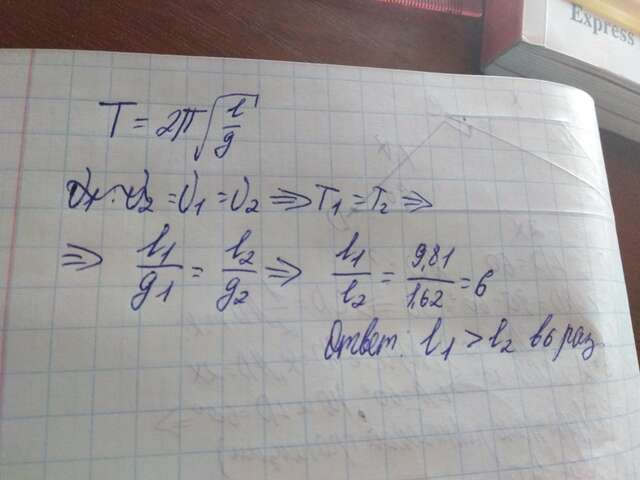 Express
T = 2π√(l/g)
ν₁ = ν₂ ⇒ T₁ = T₂ ⇒
⇒ l₁/g₁ = l₂/g₂ ⇒ l₁/l₂ = 9,81/1,62 = 6
Ответ: l₁ > l₂ в 6 раз.